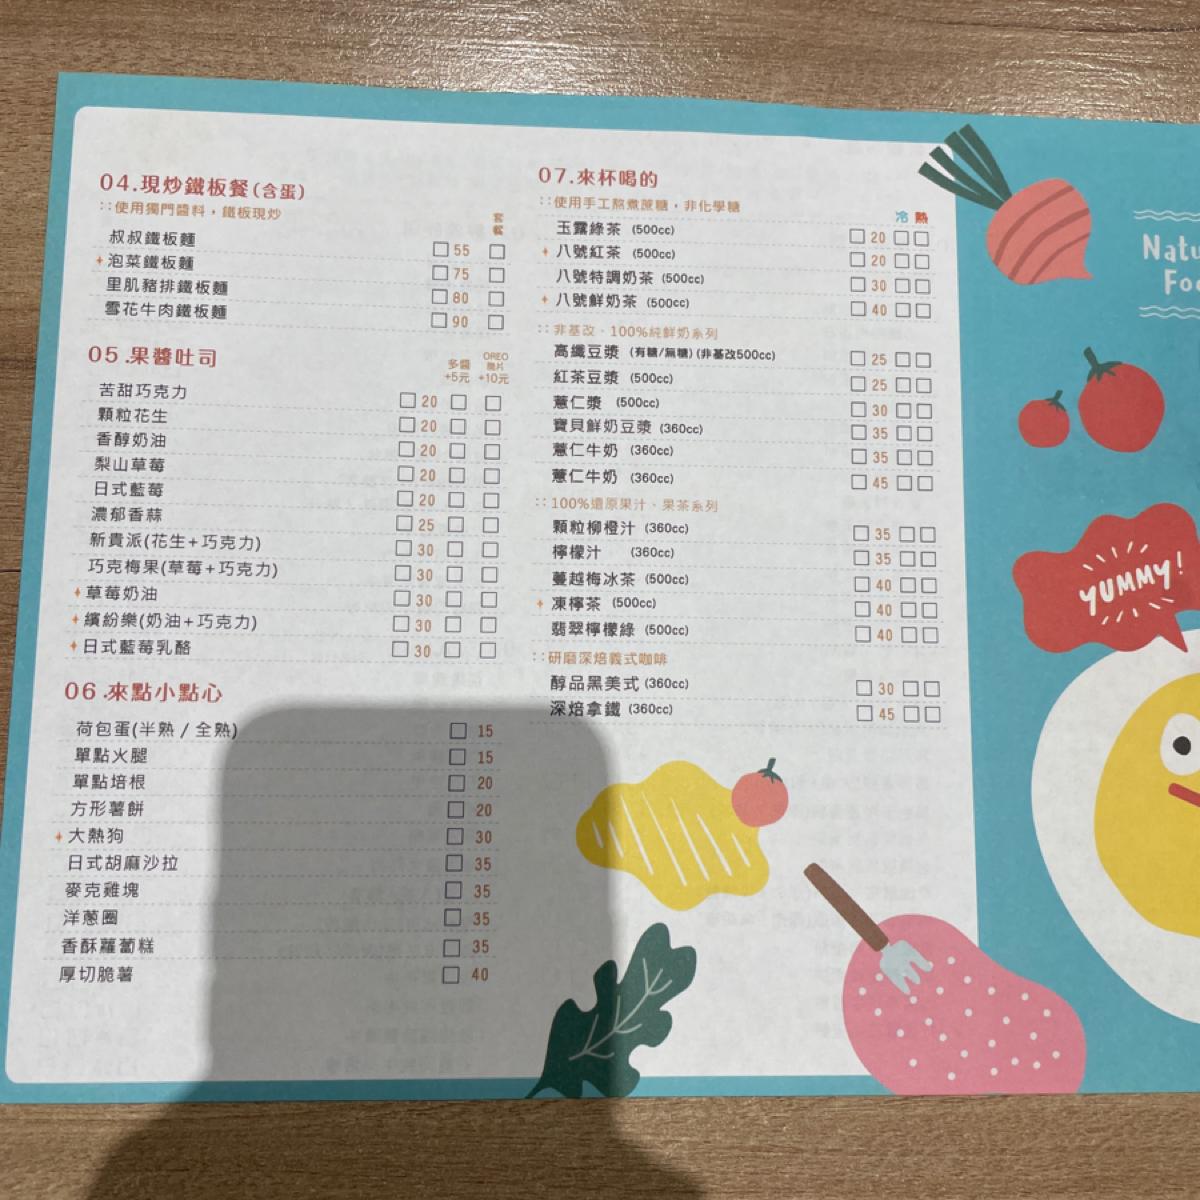 04.現炒鐵板餐(含蛋)
::使用獨門醬料，鐵板現炒
套餐
叔叔鐵板麵 55
泡菜鐵板麵 75
里肌豬排鐵板麵 80
雪花牛肉鐵板麵 90
05.果醬吐司
多醬 +5元
OREO 脆片 +10元
苦甜巧克力 20
顆粒花生 20
香醇奶油 20
梨山草莓 20
日式藍莓 20
濃郁香蒜 25
新貴派(花生+巧克力) 30
巧克梅果(草莓+巧克力) 30
草莓奶油 30
繽紛樂(奶油+巧克力) 30
日式藍莓乳酪 30
06.來點小點心
荷包蛋(半熟 / 全熟) 15
單點火腿 15
單點培根 20
方形薯餅 20
大熱狗 30
日式胡麻沙拉 35
麥克雞塊 35
洋蔥圈 35
香酥蘿蔔糕 35
厚切脆薯 40
07.來杯喝的
::使用手工熬煮蔗糖，非化學糖
冷 熱
玉露綠茶 (500cc) 20
八號紅茶 (500cc) 20
八號特調奶茶 (500cc) 30
八號鮮奶茶 (500cc) 40
::非基改、100%純鮮奶系列
高纖豆漿 (有糖/無糖)(非基改500cc) 25
紅茶豆漿 (500cc) 25
薏仁漿 (500cc) 30
寶貝鮮奶豆漿 (360cc) 35
薏仁牛奶 (360cc) 35
薏仁牛奶 (360cc) 45
::100%還原果汁、果茶系列
顆粒柳橙汁 (360cc) 35
檸檬汁 (360cc) 35
蔓越梅冰茶 (500cc) 40
凍檸茶 (500cc) 40
翡翠檸檬綠 (500cc) 40
::研磨深焙義式咖啡
醇品黑美式 (360cc) 30
深焙拿鐵 (360cc) 45
Natu
Foo
YUMMY!